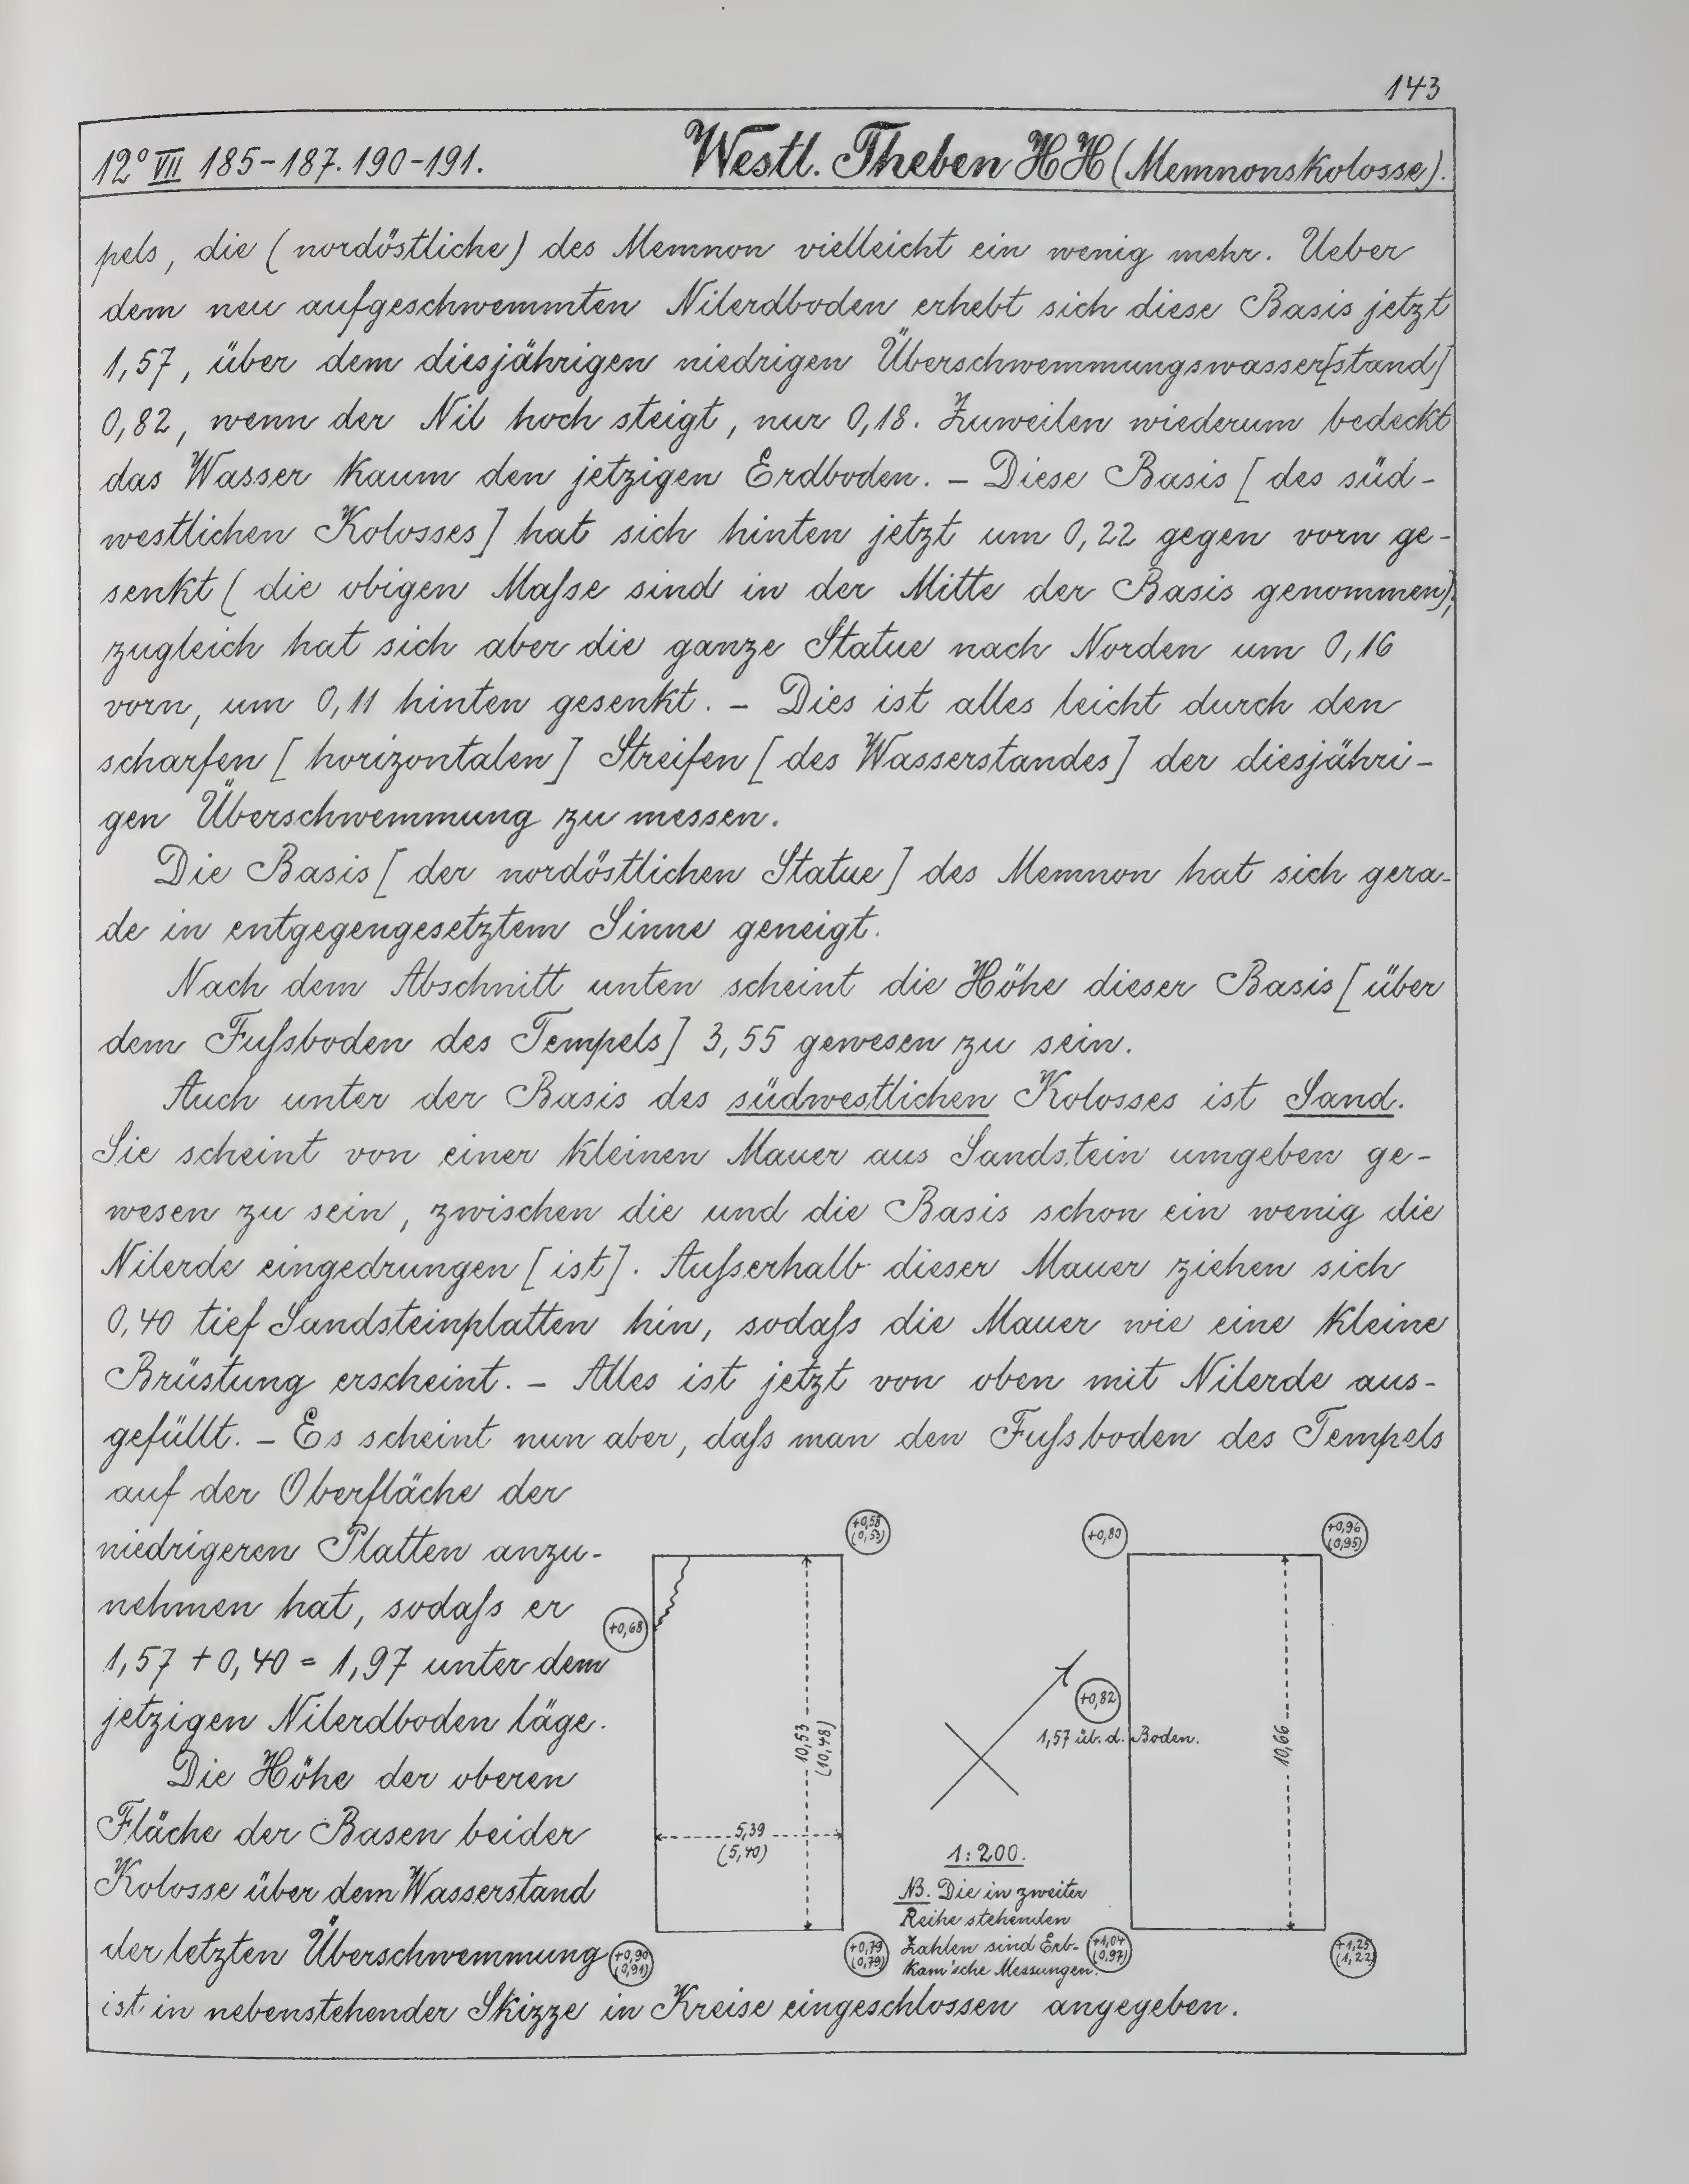 143
12° VII 185-187. 190-191. Westl. Theben HH (Memnonskolosse).
pels, die (nordöstliche) des Memnon vielleicht ein wenig mehr. Ueber
dem neu aufgeschwemmten Nilerdboden erhebt sich diese Basis jetzt
1,57, über dem diesjährigen niedrigen Überschwemmungswasser[stand]
0,82, wenn der Nil hoch steigt, nur 0,18. Zuweilen wiederum bedeckt
das Wasser kaum den jetzigen Erdboden. – Diese Basis [des süd-
westlichen Kolosses] hat sich hinten jetzt um 0,22 gegen vorn ge-
senkt (die obigen Maſse sind in der Mitte der Basis genommen),
zugleich hat sich aber die ganze Statue nach Norden um 0,16
vorn, um 0,11 hinten gesenkt. – Dies ist alles leicht durch den
scharfen [horizontalen] Streifen [des Wasserstandes] der diesjähri-
gen Überschwemmung zu messen.
Die Basis [der nordöstlichen Statue] des Memnon hat sich gera-
de in entgegengesetztem Sinne geneigt.
Nach dem Abschnitt unten scheint die Höhe dieser Basis [über
dem Fuſsboden des Tempels] 3,55 gewesen zu sein.
Auch unter der Basis des südwestlichen Kolosses ist Sand.
Sie scheint von einer kleinen Mauer aus Sandstein umgeben ge-
wesen zu sein, zwischen die und die Basis schon ein wenig die
Nilerde eingedrungen [ist]. Auſserhalb dieser Mauer ziehen sich
0,40 tief Sandsteinplatten hin, sodaſs die Mauer wie eine kleine
Brüstung erscheint. – Alles ist jetzt von oben mit Nilerde aus-
gefüllt. – Es scheint nun aber, daſs man den Fuſsboden des Tempels
auf der Oberfläche der
niedrigeren Platten anzu-
nehmen hat, sodaſs er
1,57 + 0,40 = 1,97 unter dem
jetzigen Nilerdboden läge.
Die Höhe der oberen
Fläche der Basen beider
Kolosse über dem Wasserstand
der letzten Überschwemmung
ist in nebenstehender Skizze in Kreise eingeschlossen angegeben.
+0,58
(0,53)
+0,68
10,53
(10,48)
5,39
(5,40)
+0,90
(0,91)
+0,79
(0,79)
+0,80
+0,96
(0,95)
+0,82
1,57 üb. d. Boden.
10,66
1:200.
NB. Die in zweiter
Reihe stehenden
Zahlen sind Erb-
kam'sche Messungen.
+1,04
(0,97)
+1,25
(1,22)